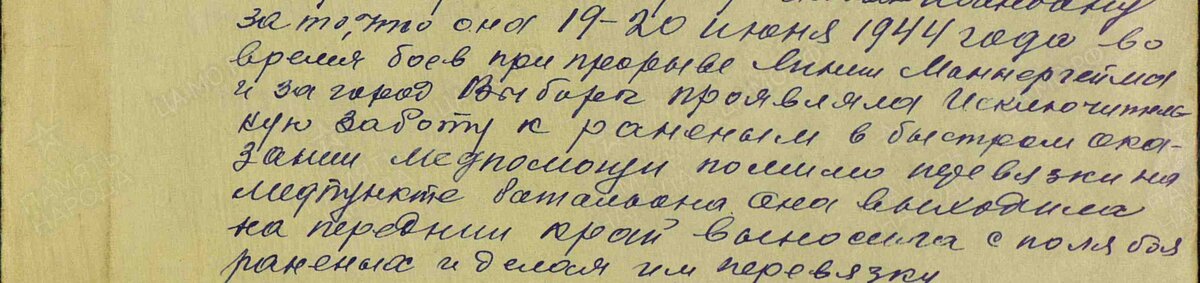 за то, что она 19-20 июня 1944 года во
время боев при прорыве линии Маннергейма
и за город Выборг проявляла исключитель-
ную заботу к раненым в быстром ока-
зании медпомощи помимо перевязки на
медпункте батальона она выходила
на передний край выносила с поля боя
раненых и делая им перевязку